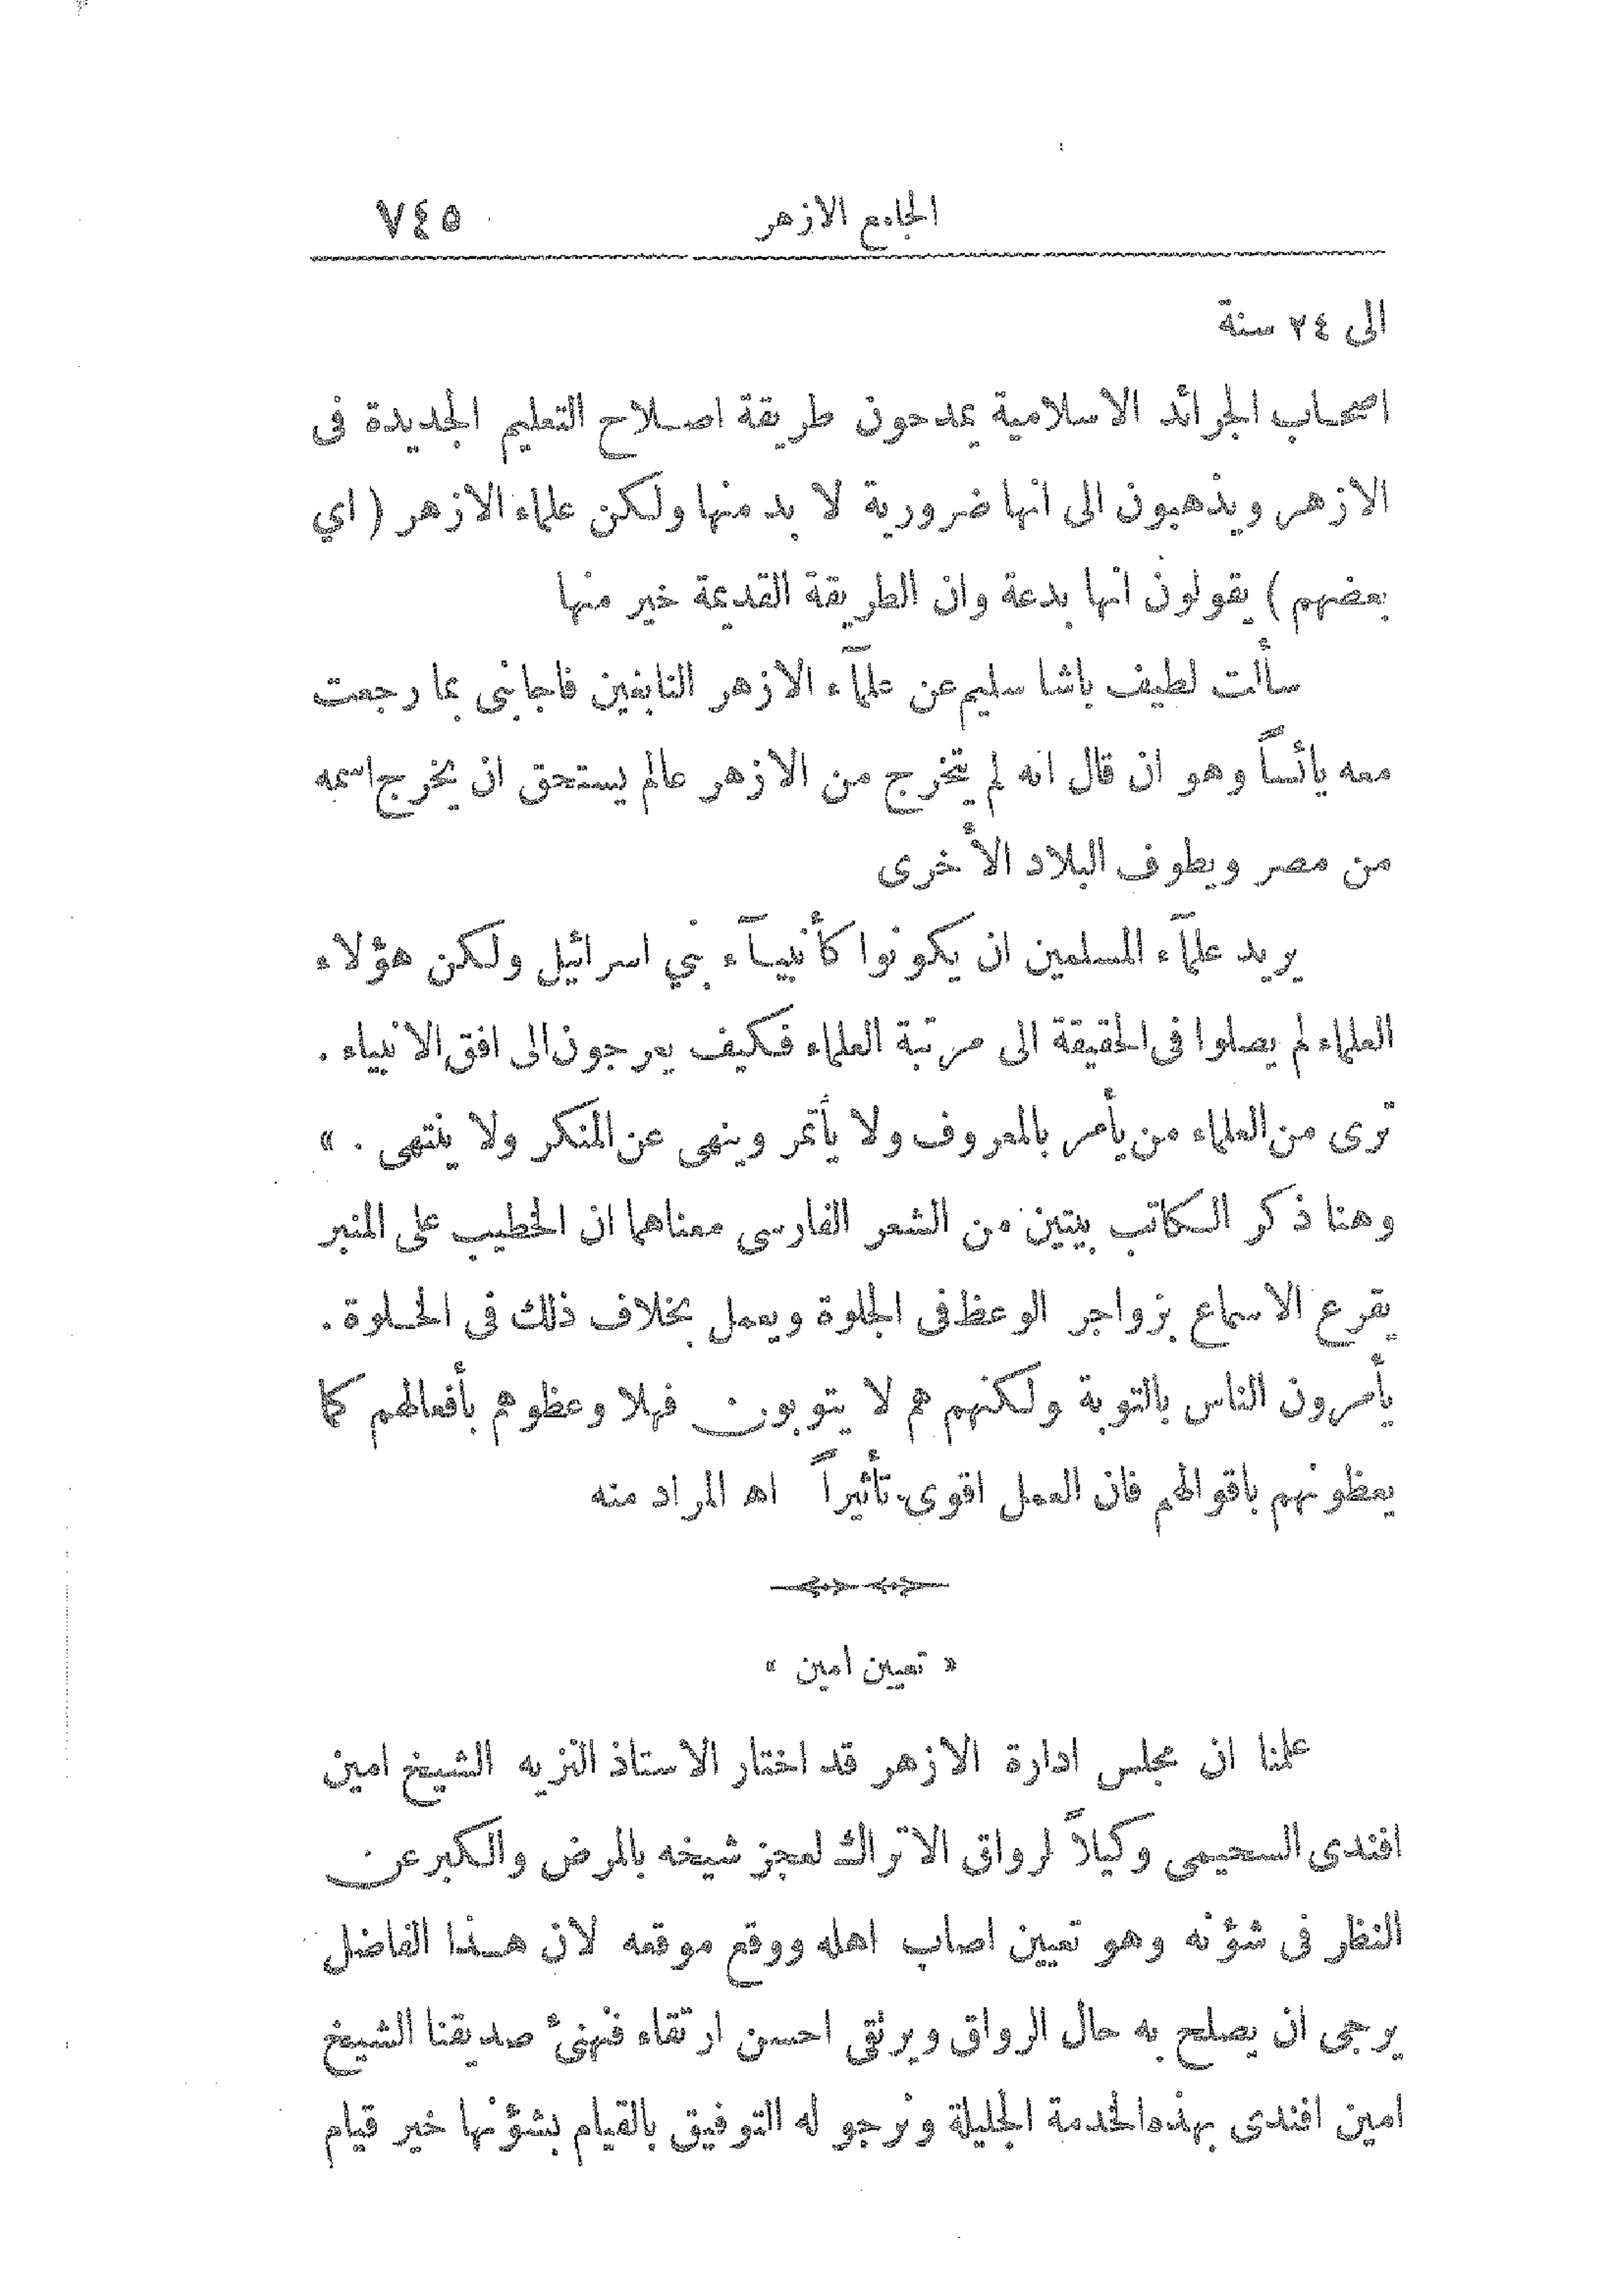 الجامع الازهر ٧٤٥
الى ٢٤ سنة
اصحاب الجرائد الاسلامية يمدحون طريقة اصلاح التعليم الجديدة فى
الازهر ويذهبون الى انها ضرورية لا بد منها ولكن علماء الازهر ( اي
بعضهم ) يقولون انها بدعة وان الطريقة القديمة خير منها
سألت لطيف باشا سليم عن علمآء الازهر النابغين فاجابنى بما رجعت
معه يائساً وهو ان قال انه لم يتخرج من الازهر عالم يستحق ان يخرج اسمه
من مصر ويطوف البلاد الأخرى
يريد علمآء المسلمين ان يكونوا كأنبيآء بني اسرائيل ولكن هؤلاء
العلماء لم يصلوا فى الحقيقة الى مرتبة العلماء فكيف يعرجون الى افق الانبياء .
ترى من العلماء من يأمر بالمعروف ولا يأتمر وينهى عن المنكر ولا ينتهى . »
وهنا ذكر الكاتب بيتين من الشعر الفارسى معناهما ان الخطيب على المنبر
يقرع الاسماع بزواجر الوعظ فى الجلوة ويعمل بخلاف ذلك فى الخلوة .
يأمرون الناس بالتوبة ولكنهم هم لا يتوبون فهلا وعظوهم بأفعالهم كما
يعظونهم باقوالهم فان العمل اقوى تأثيراً اه المراد منه
« تعيين امين »
علمنا ان مجلس ادارة الازهر قد اختار الاستاذ النزيه الشيخ امين
افندى السحيمى وكيلاً لرواق الاتراك لعجز شيخه بالمرض والكبر عن
النظر فى شؤنه وهو تعيين اصاب اهله ووقع موقعه لان هذا الفاضل
يرجى ان يصلح به حال الرواق ويرتقى احسن ارتقاء فنهنئ صديقنا الشيخ
امين افندى بهذه الخدمة الجليلة ونرجو له التوفيق بالقيام بشؤنها خير قيام